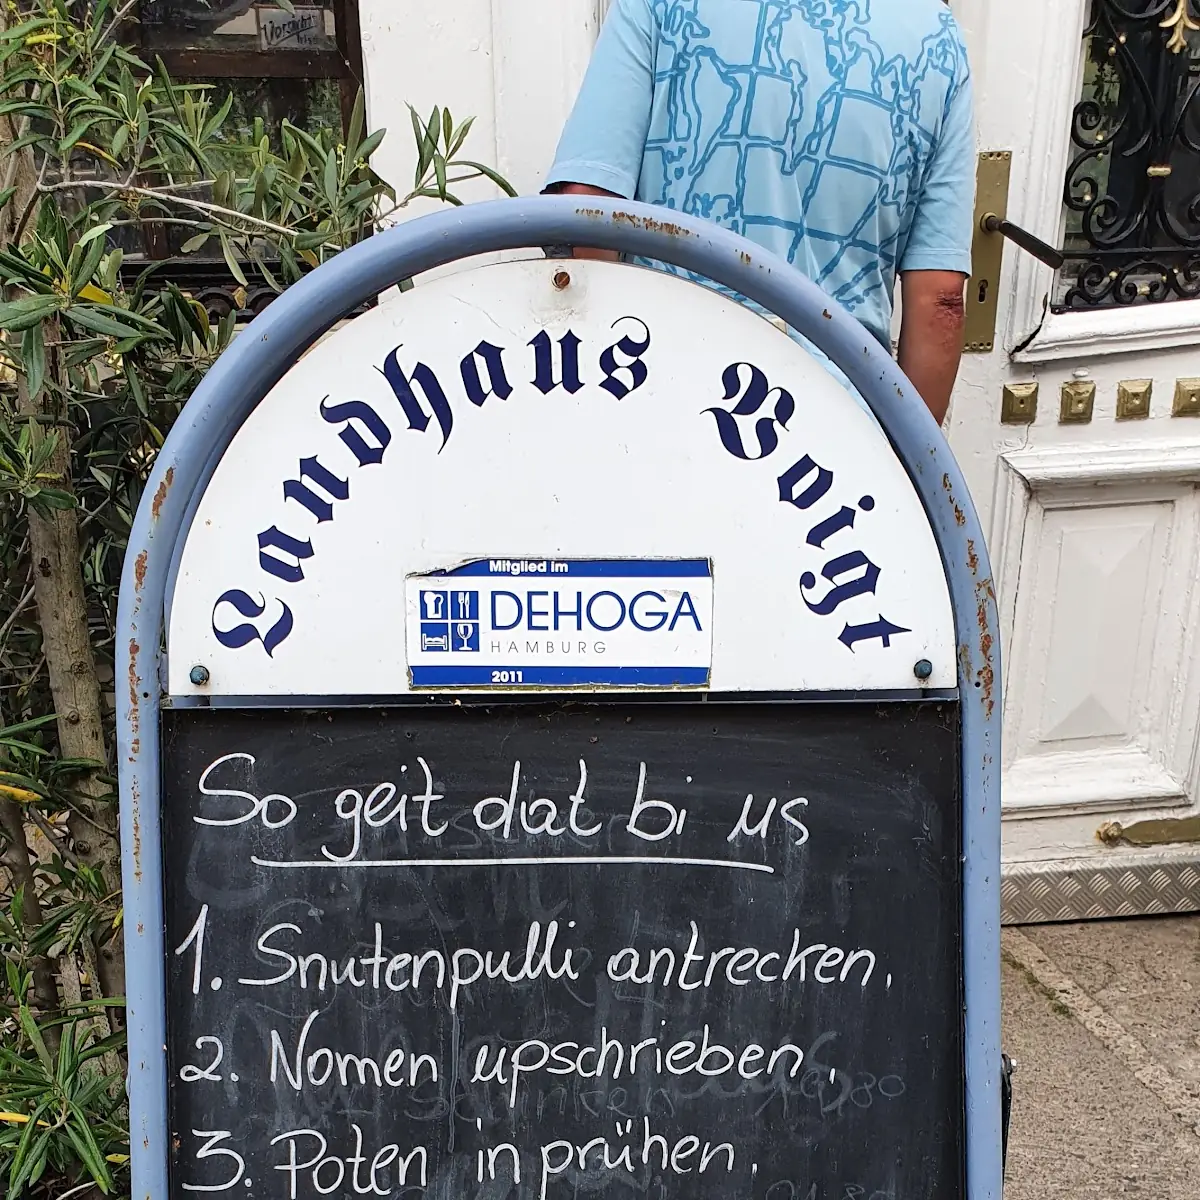 Landhaus Voigt
Mitglied im
DEHOGA
HAMBURG
2011
So geit dat bi us
1. Snutenpulli antrecken.
2. Nomen upschrieben.
3. Poten inprühen.